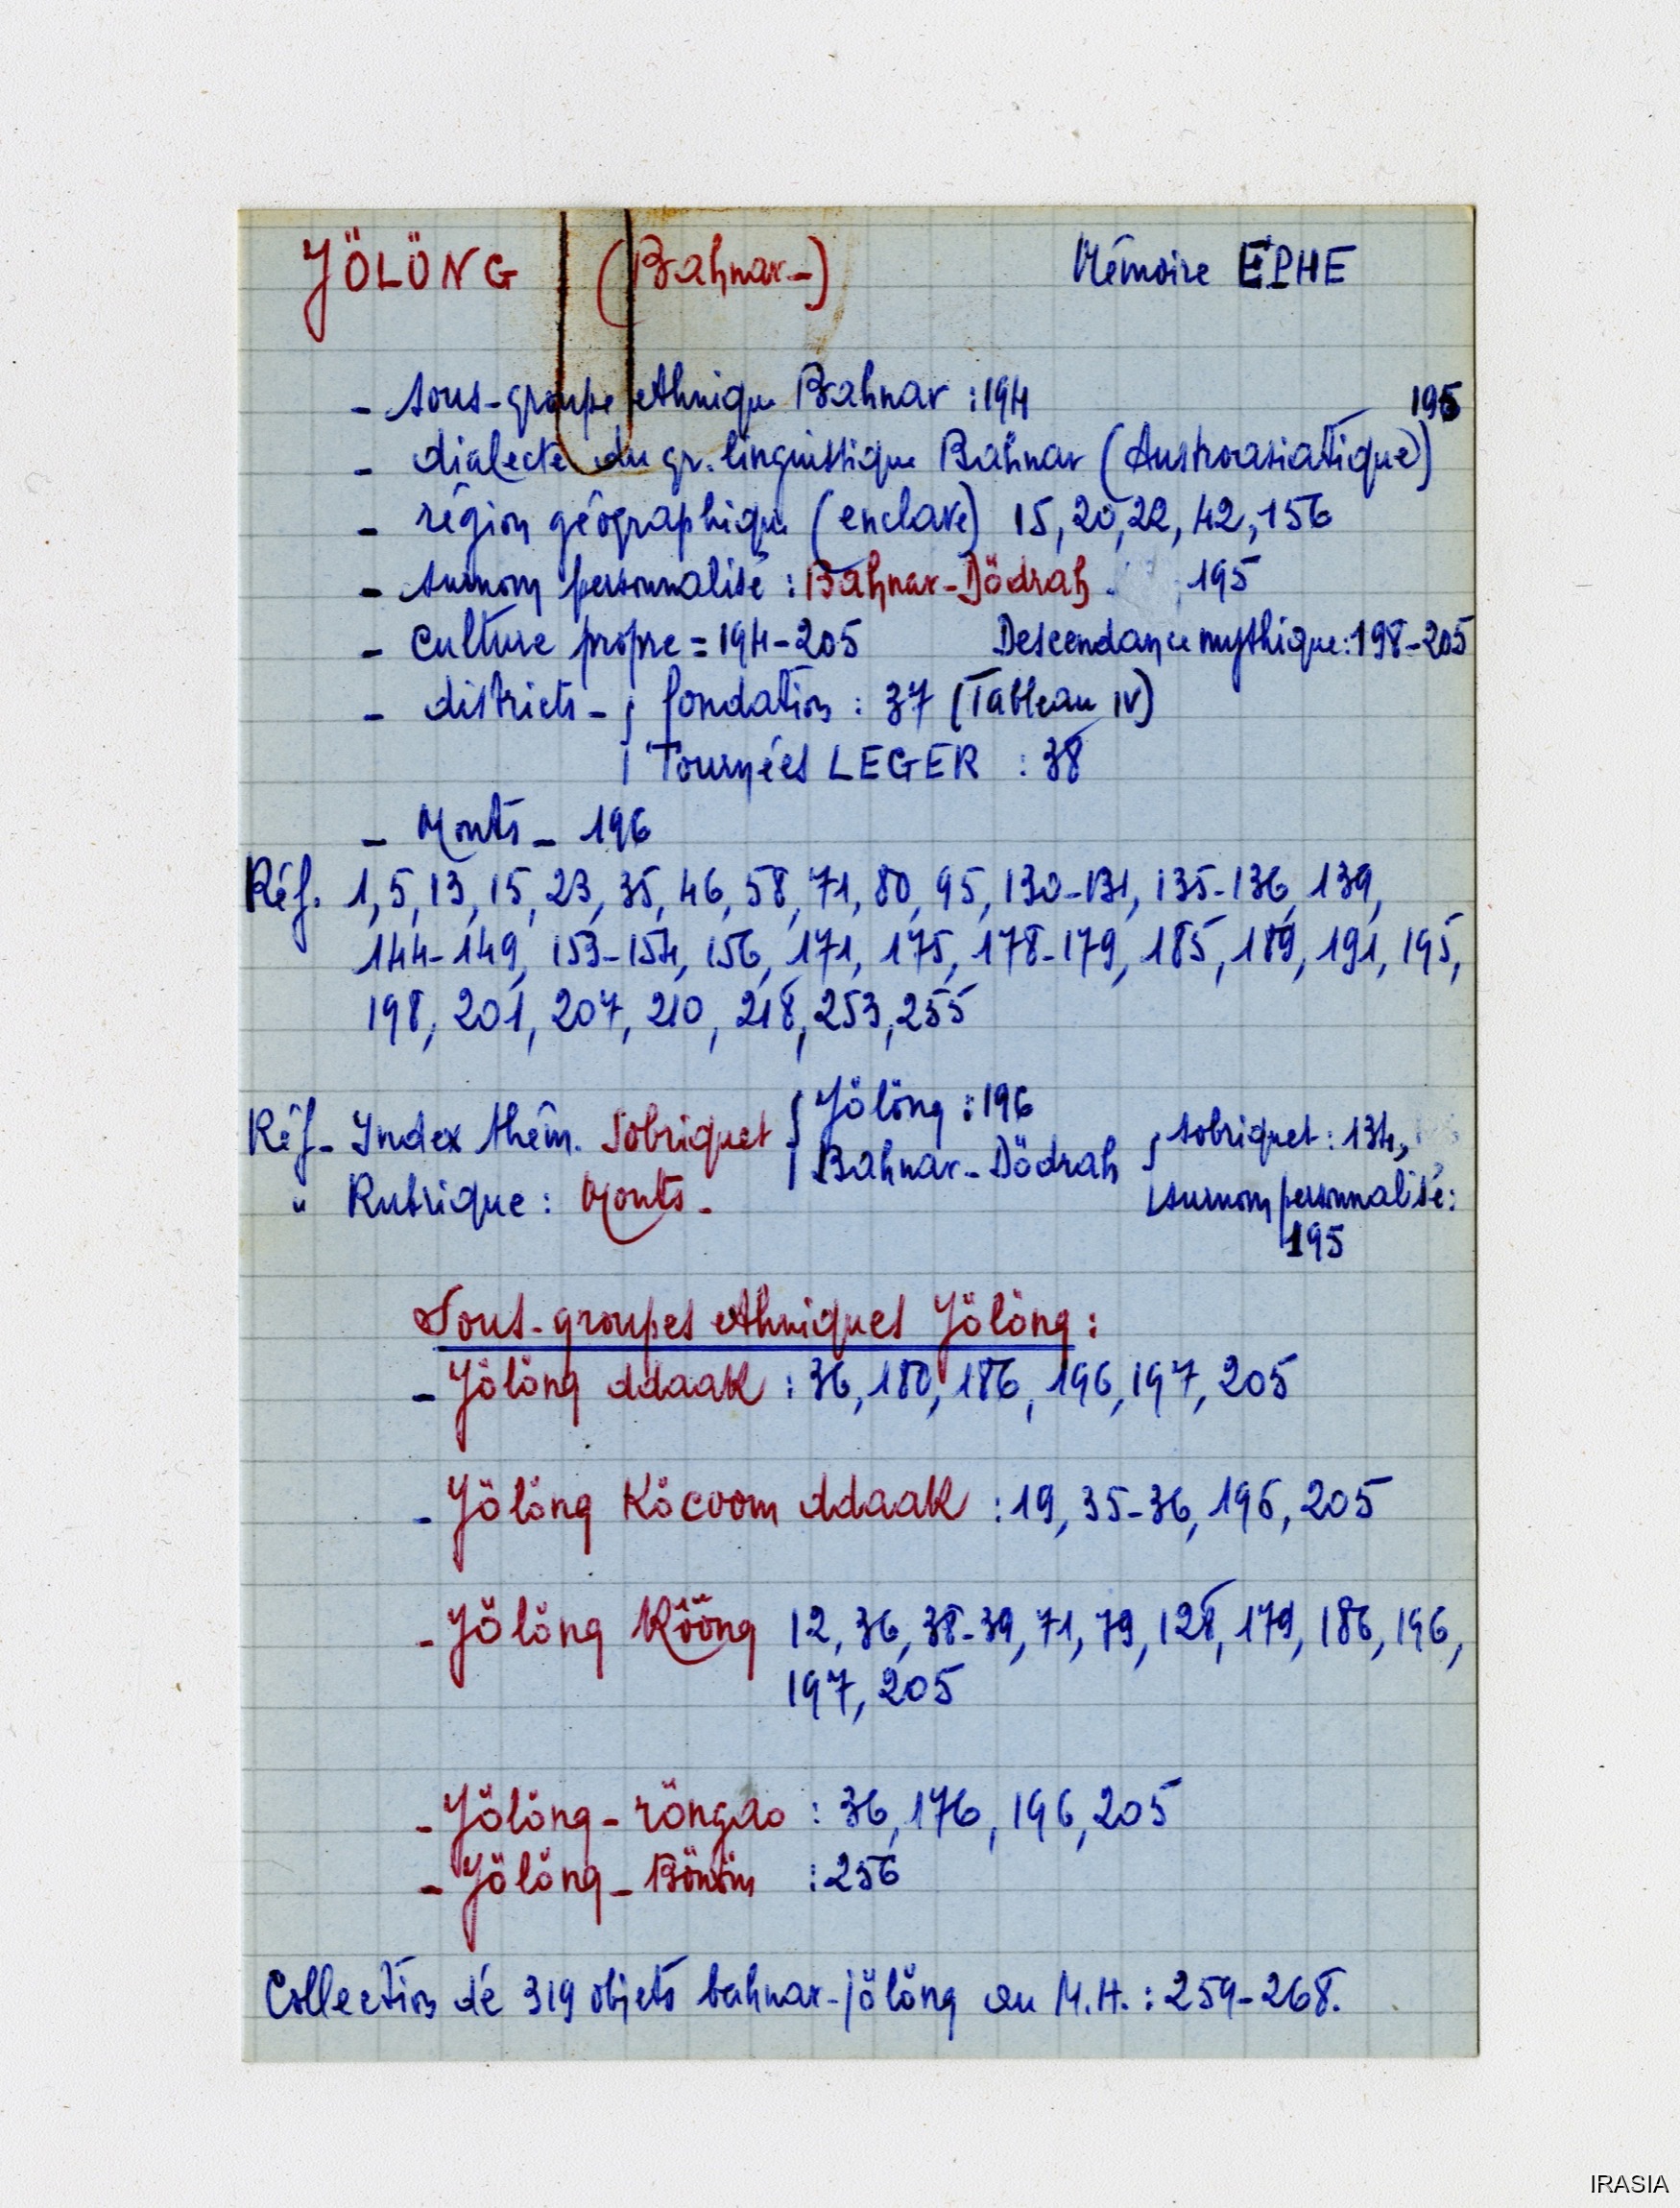 JÖLÖNG (Bahnar-) Mémoire EPHE
- sous-groupe ethnique Bahnar : 194
195
- dialecte du gr. linguistique Bahnar (Austroasiatique)
- région géographique (enclave) 15, 20, 22, 42, 156
- surnom personnalisé : Bahnar-Dödrah. 195
- Culture propre = 194-205 Descendance mythique : 198-205
- districts - { fondation : 37 (Tableau IV)
Tournées LEGER : 38
- Monts - 196
Réf. 1, 5, 13, 15, 23, 35, 46, 58, 71, 80, 95, 130-131, 135-136, 139,
144-149, 153-154, 156, 171, 175, 178-179, 185, 189, 191, 195,
198, 201, 207, 210, 218, 253, 255
Réf - Index thém. Sobriquet { Jölöng : 196
Bahnar-Dödrah { sobriquet : 134,
surnom personnalisé :
195
" Rubrique : Monts -
Sous-groupes ethniques Jölöng :
- Jölöng ddaak : 36, 180, 186, 196, 197, 205
- Jölöng Köcvom ddaak : 19, 35-36, 196, 205
- Jölöng Kööng 12, 36, 38-39, 71, 79, 128, 179, 186, 196,
197, 205
- Jölöng-röngao : 36, 176, 196, 205
- Jölöng-Bönöm : 256
Collection de 319 objets bahnar-jölöng au M.H. : 259-268.
IRASIA